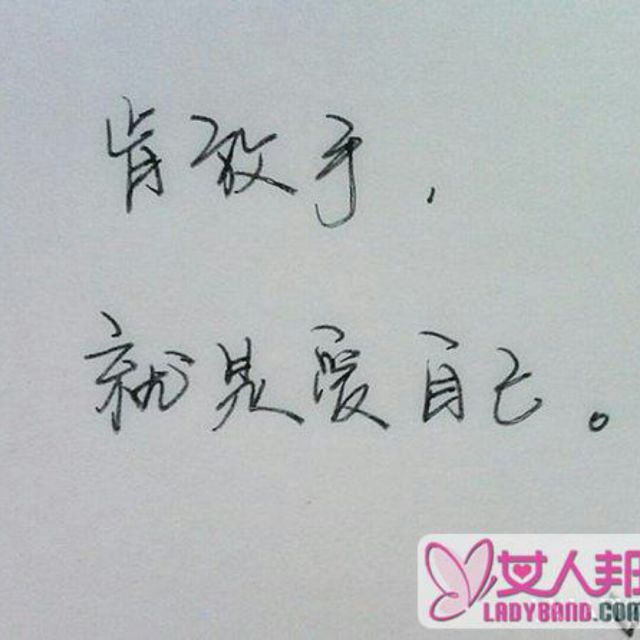 肯放手，
就是爱自己。
女人邦
LADYBAND.COM